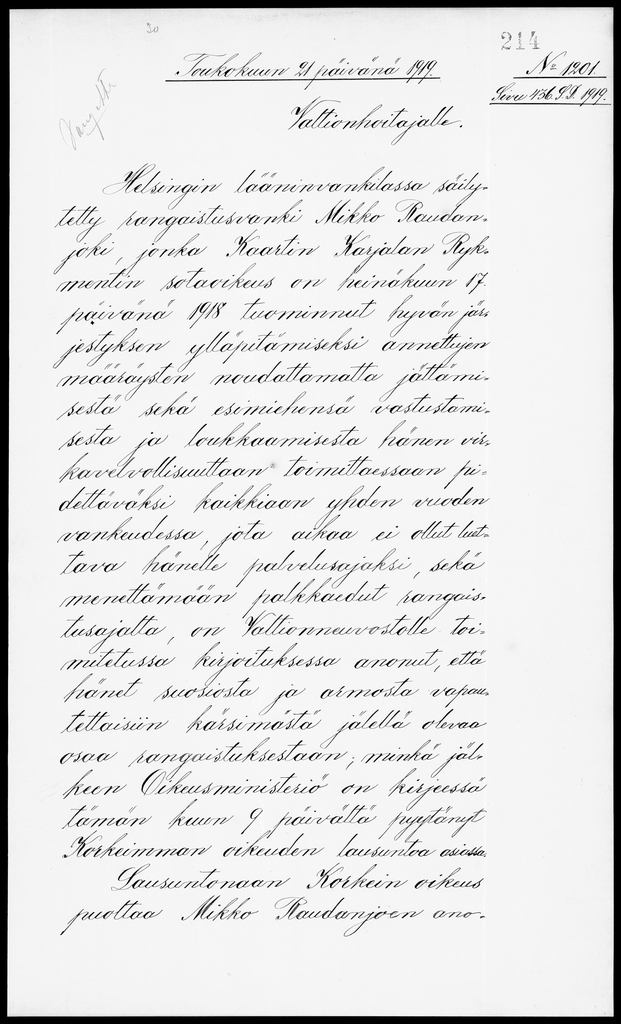 30
214
Toukokuun 21 päivänä 1919.
No 1201.
Sivu 456 S.D. 1919.
Valtionhoitajalle.
Helsingin lääninvankilassa säily-
tetty rangaistusvanki Mikko Raudan-
joki, jonka Kaartin Karjalan Ryk-
mentin sotaoikeus on heinäkuun 17.
päivänä 1918 tuominnut hyvän jär-
jestyksen ylläpitämiseksi annettujen
määräysten noudattamatta jättämi-
sestä sekä esimiehensä vastustami-
sesta ja loukkaamisesta hänen vir-
kavelvollisuuttaan toimittaessaan pi-
dettäväksi kaikkiaan yhden vuoden
vankeudessa, jota aikaa ei ollut luet-
tava hänelle palvelusajaksi, sekä
menettämään palkkaedut rangais-
tusajalta, on Valtionneuvostolle toi-
mitetussa kirjoituksessa anonut, että
hänet suosiosta ja armosta vapau-
tettaisiin kärsimästä jälellä olevaa
osaa rangaistuksestaan; minkä jäl-
keen Oikeusministeriö on kirjeessä
tämän kuun 9 päivältä pyytänyt
Korkeimman oikeuden lausuntoa asiassa.
Lausuntonaan Korkein oikeus
puoltaa Mikko Raudanjoen ano-